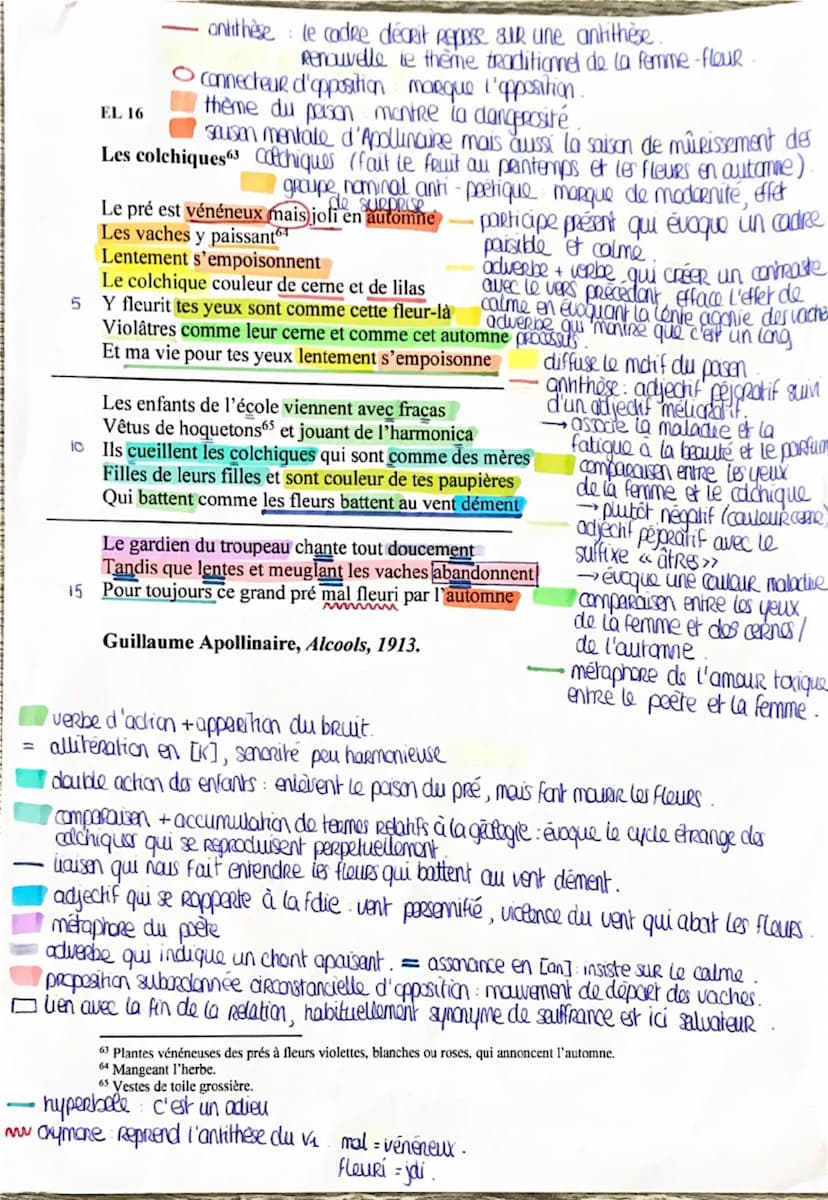 — antithèse : le cadre décrit repose sur une antithèse.
Renouvelle le thème traditionnel de la femme-fleur.
connecteur d'opposition : marque l'opposition.
thème du poison : montre la dangerosité.
saison mentale d'Apollinaire mais aussi la saison de mûrissement des
colchiques (fait le fruit au printemps et les fleurs en automne).
groupe nominal anti-poétique : marque de modernité, effet
de surprise
EL 16
Les colchiques⁶³
Le pré est vénéneux mais joli en automne
Les vaches y paissant⁶⁴
Lentement s'empoisonnent
Le colchique couleur de cerne et de lilas
5 Y fleurit tes yeux sont comme cette fleur-là
Violâtres comme leur cerne et comme cet automne
Et ma vie pour tes yeux lentement s'empoisonne
Les enfants de l'école viennent avec fracas
Vêtus de hoquetons⁶⁵ et jouant de l'harmonica
10 Ils cueillent les colchiques qui sont comme des mères
Filles de leurs filles et sont couleur de tes paupières
Qui battent comme les fleurs battent au vent dément
Le gardien du troupeau chante tout doucement
Tandis que lentes et meuglant les vaches abandonnent
15 Pour toujours ce grand pré mal fleuri par l'automne
Guillaume Apollinaire, Alcools, 1913.
— participe présent qui évoque un cadre
paisible et calme.
— adverbe + verbe qui créer un contraste
avec le vers précédant, efface l'effet de
calme en évoquant la lente agonie des vaches
adverbe qui montre que c'est un long
processus.
diffuse le motif du poison
— antithèse : adjectif péjoratif suivi
d'un adjectif mélioratif.
→ associe la maladie et la
fatigue à la beauté et le parfum
comparaison entre les yeux
de la femme et le colchique
→ plutôt négatif (couleur cerne)
adjectif péjoratif avec le
suffixe « âtres »
→ évoque une couleur maladive
comparaison entre les yeux
de la femme et des cernes/
de l'automne.
— métaphore de l'amour toxique
entre le poète et la femme.
verbe d'action + apparition du bruit.
= allitération en [K], sonorité peu harmonieuse
double action des enfants : enlèvent le poison du pré, mais font mourir les fleurs.
comparaison + accumulation de termes relatifs à la
: évoque le cycle étrange des
colchiques qui se reproduisent perpetuellement.
— liaison qui nous fait entendre les fleurs qui battent au vent dément.
adjectif qui se rapporte à la folie : vent personnifié, violence du vent qui abat les fleurs.
métaphore du poète
adverbe qui indique un chant apaisant. = assonance en [an] : insiste sur le calme.
proposition subordonnée circonstancielle d'opposition : mouvement de départ des vaches.
lien avec la fin de la relation, habituellement synonyme de souffrance est ici salvateur.
⁶³ Plantes vénéneuses des prés à fleurs violettes, blanches ou roses, qui annoncent l'automne.
⁶⁴ Mangeant l'herbe.
⁶⁵ Vestes de toile grossière.
— hyperbole : c'est un adieu
oxymore : reprend l'antithèse du V1 mal = vénéneux.
fleuri = joli.